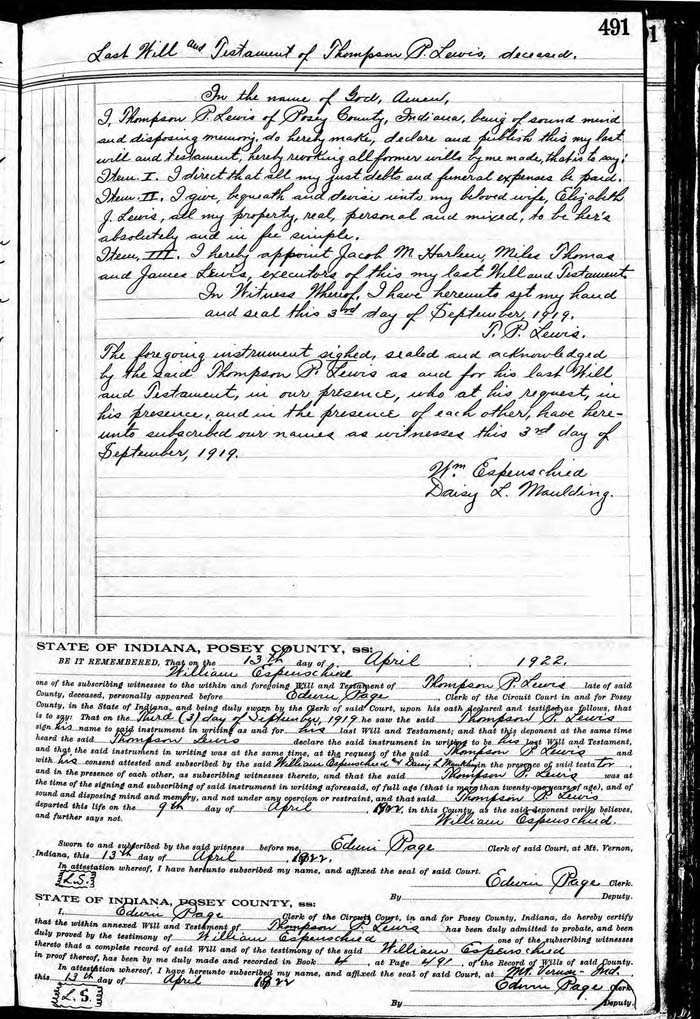 491
Last Will and Testament of Thompson P. Lewis, deceased.
In the name of God, Amen,
I, Thompson P. Lewis of Posey County, Indiana, being of sound mind
and disposing memory, do hereby make, declare and publish this my last
will and testament, hereby revoking all former wills by me made, that is to say:
Item I. I direct that all my just debts and funeral expenses be paid.
Item II. I give, bequeath and devise unto my beloved wife, Elizabeth
J. Lewis, all my property, real, personal and mixed, to be her's
absolutely and in fee simple.
Item, III. I hereby appoint Jacob M. Harlem, Miles Thomas
and James Lewis, executors of this my last Will and Testament
In Witness Whereof, I have hereunto set my hand
and seal this 3rd day of September, 1919.
T. P. Lewis.
The foregoing instrument signed, sealed and acknowledged
by the said Thompson P. Lewis as and for his last Will
and Testament, in our presence, who at his request, in
his presence, and in the presence of each other, have here-
unto subscribed our names as witnesses this 3rd day of
September, 1919.
Wm Espenschied
Daisy L. Maulding.
STATE OF INDIANA, POSEY COUNTY, ss:
BE IT REMEMBERED, That on the 13th day of April 1922.
William Espenschied
one of the subscribing witnesses to the within and foregoing Will and Testament of Thompson P. Lewis late of said
County, deceased, personally appeared before Edwin Page, Clerk of the Circuit Court in and for Posey
County, in the State of Indiana, and being duly sworn by the Clerk of said Court, upon his oath declared and testified as follows, that
is to say: That on the Third (3) day of September, 1919 he saw the said Thompson P. Lewis
sign his name to said instrument in writing as and for his last Will and Testament; and that this deponent at the same time
heard the said Thompson Lewis declare the said instrument in writing to be his last Will and Testament,
and that the said instrument in writing was at the same time, at the request of the said Thompson P. Lewis and
with his consent attested and subscribed by the said William Espenschied & Daisy L. Maulding in the presence of said testator
and in the presence of each other, as subscribing witnesses thereto, and that the said Thompson P. Lewis was at
the time of the signing and subscribing of said instrument in writing aforesaid, of full age (that is more than twenty-one years of age), and of
sound and disposing mind and memory, and not under any coercion or restraint, and that said Thompson P. Lewis
departed this life on the 9th day of April 1922, in this County, as the said deponent verily believes,
and further says not. William Espenschied.
Sworn to and subscribed by the said witness before me, Edwin Page Clerk of said Court, at Mt. Vernon,
Indiana, this 13th day of April 1922.
In attestation whereof, I have hereunto subscribed my name, and affixed the seal of said Court.
L.S. Edwin Page Clerk.
By Deputy.
STATE OF INDIANA, POSEY COUNTY, ss:
I, Edwin Page Clerk of the Circuit Court, in and for Posey County, Indiana, do hereby certify
that the within annexed Will and Testament of Thompson P. Lewis has been duly admitted to probate, and been
duly proved by the testimony of William Espenschied one of the subscribing witnesses
thereto that a complete record of said Will and of the testimony of the said William Espenschied
in proof thereof, has been by me duly made and recorded in Book 4, at Page 491, of the Record of Wills of said County.
In attestation whereof, I have hereunto subscribed my name, and affixed the seal of said Court, at Mt. Vernon - Ind.
this 13th day of April 1922
Edwin Page Clerk
L.S. By Deputy.